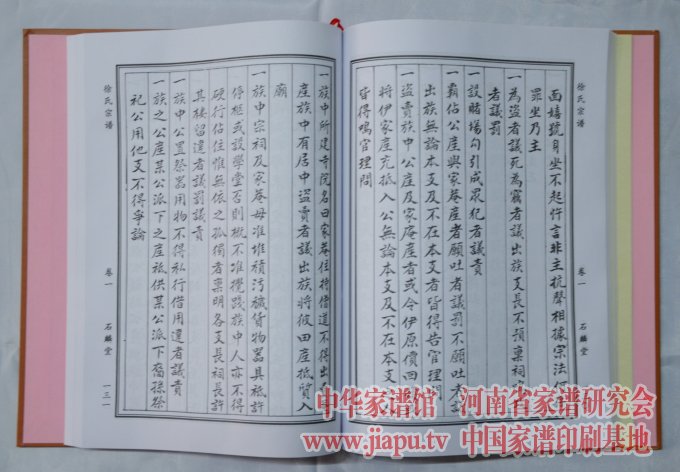 徐氏宗谱
卷一
石麟堂
面嬉號身坐不起忤言非主抗聲相據宗法何
罪坐乃主
一為盜者議死為竊者議出族支長不預稟祠
者議罰
一設賭場勾引成眾犯者議責
一霸佔公產與家菴產者願吐者議罰不願吐者議
出族無論本支及不在本支者皆得告官理問
一盜賣族中公產及家庵產者或令伊原價回
將伊家產充抵入公無論本支及不在本支
皆得鳴官理問
一族中所建寺院名曰家菴住持僧道不得出
產族中有居中盜賣者議出族將彼田產抵質入
廟
一族中宗祠及家菴毋准堆積污穢貨物器具祗許
停柩或設學堂否則概不准攪踐族中人亦不得
硬行佔住惟無依之孤獨者稟明各支長祠長許
其棲留違者議罰議責
一族中公置祭器用物不得私行借用違者議責
一族之公產某公派下之產祗供某公派下裔孫祭
祀公用他支不得爭論
徐氏宗谱
卷一
石麟堂
一三一
中华家谱馆 河南省家谱研究会
www.jiapu.tv 中国家谱印刷基地